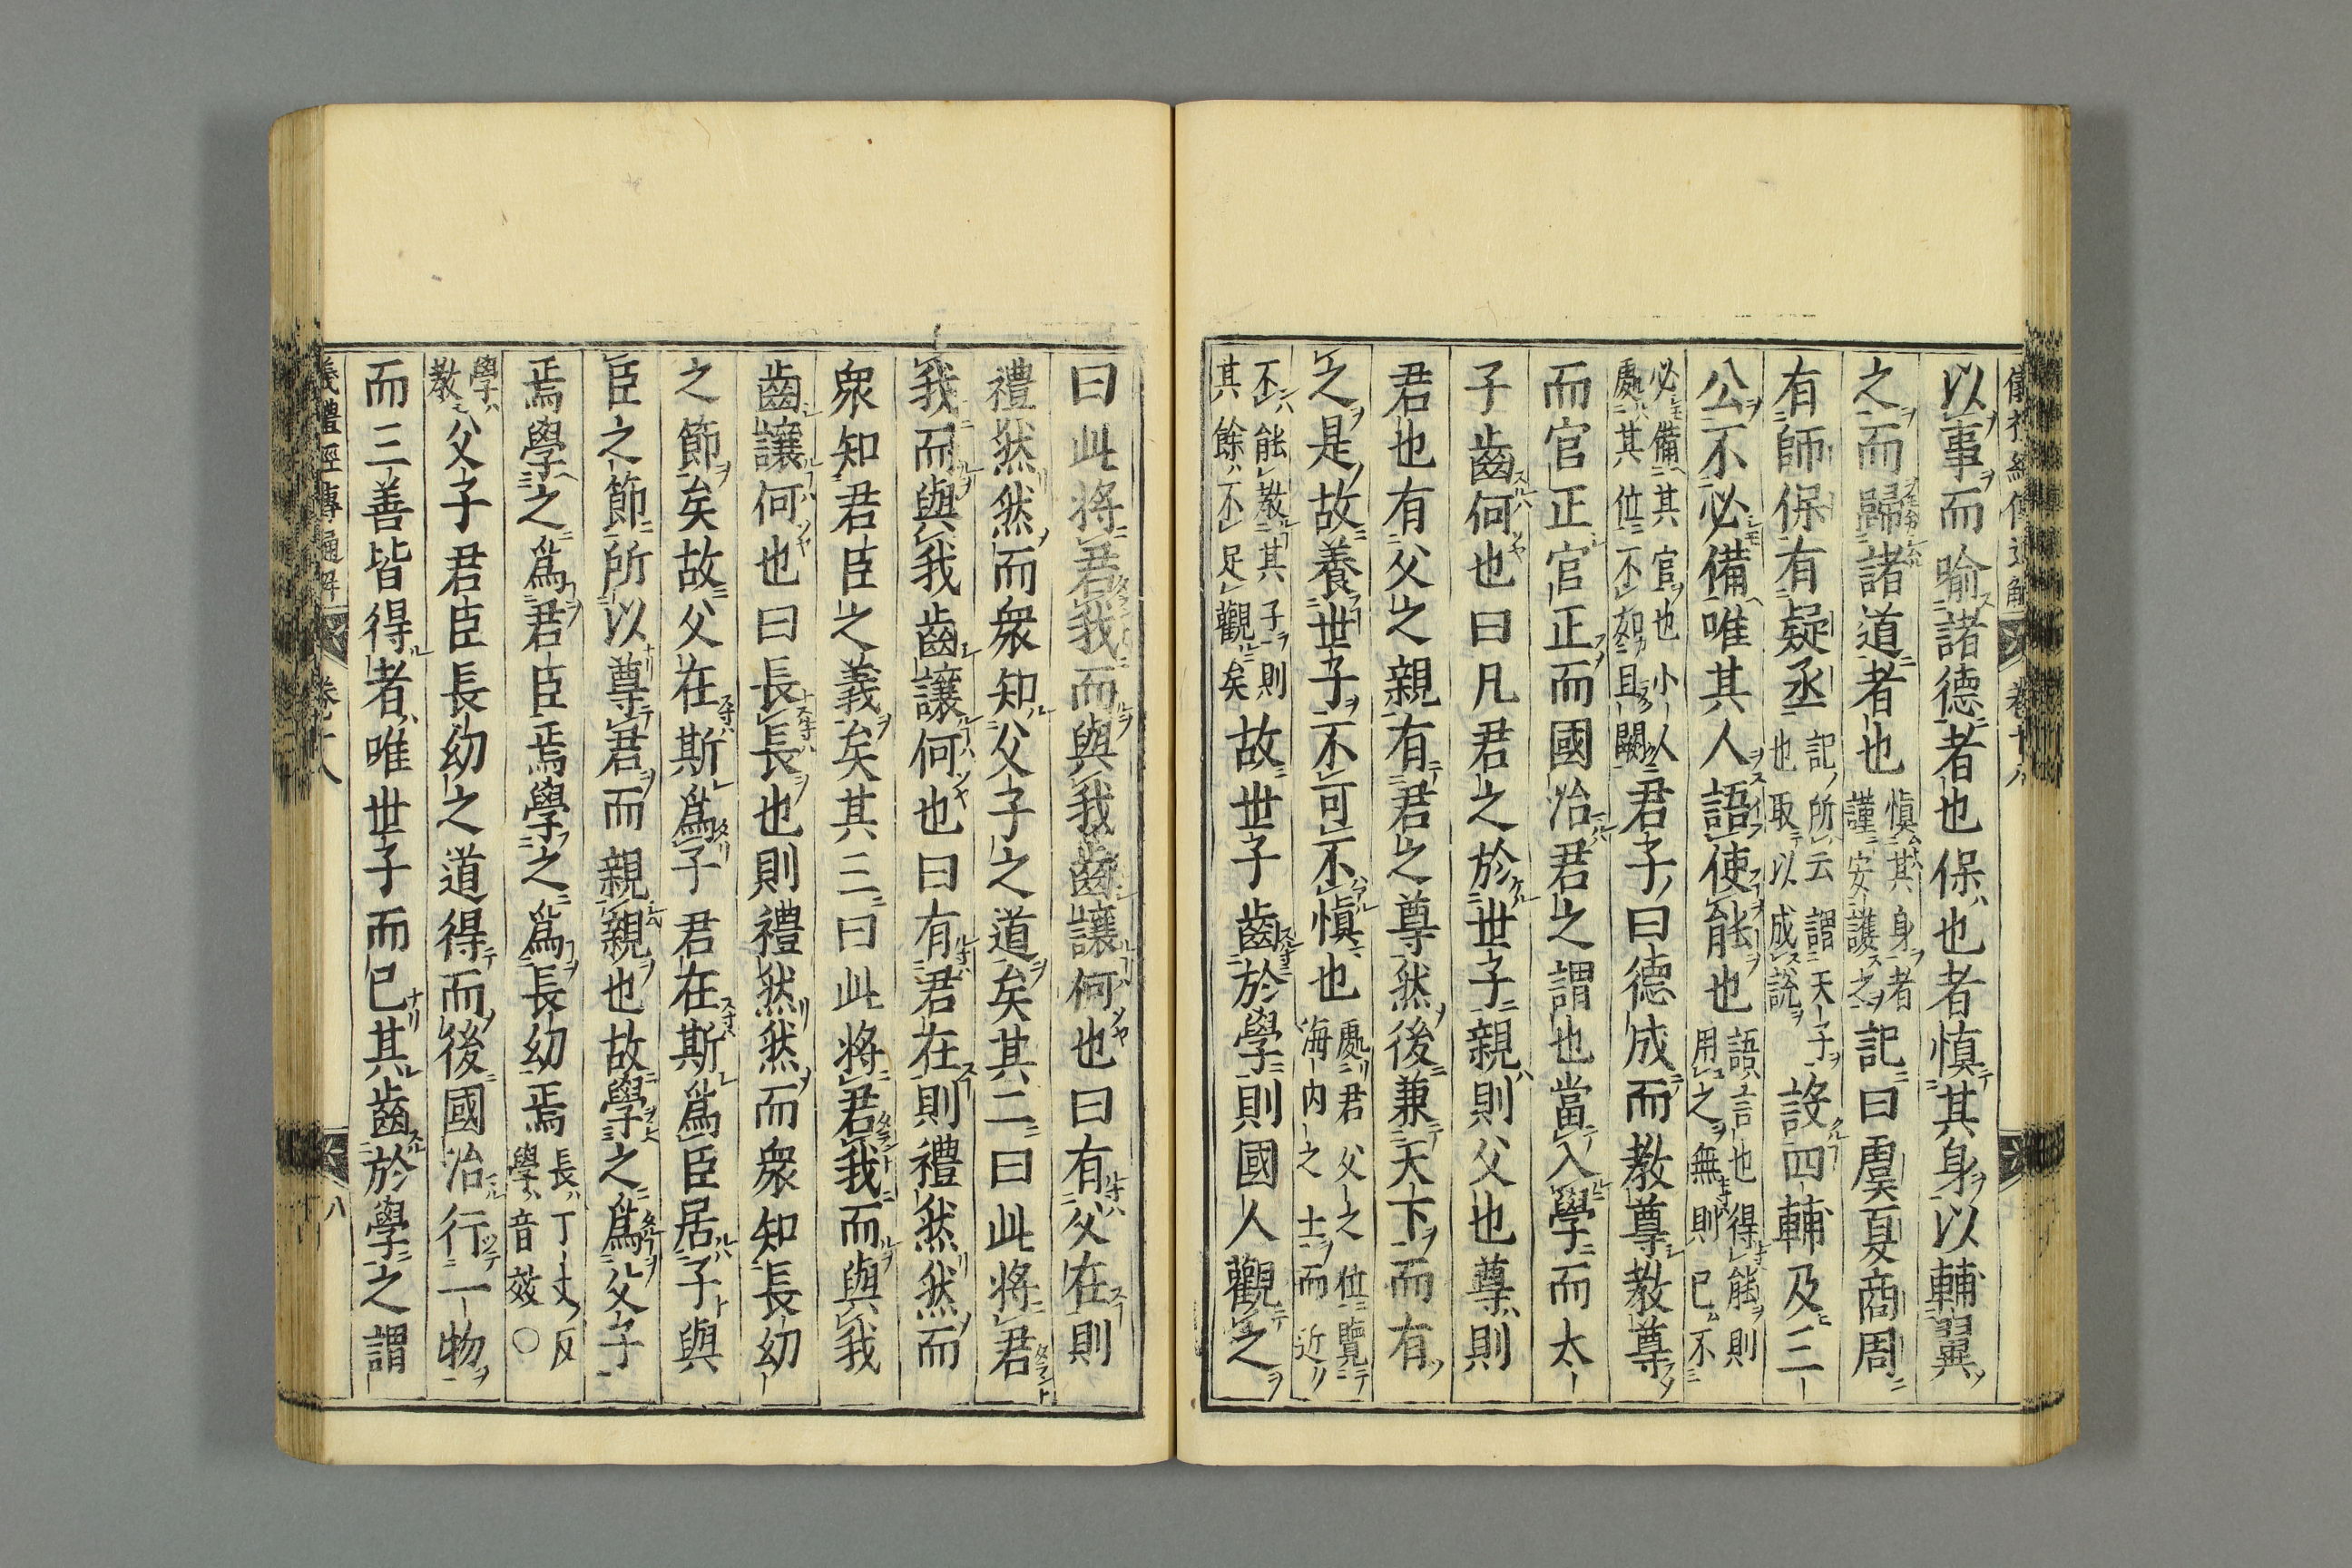 以事而喻諸德者也保也者慎其身以輔翼
之而歸諸道者也慎其身者謹安護之記曰虞夏商周
有師保有疑丞記所云謂天子也取以成說設四輔及三
公不必備唯其人語使能也語言也得能則用之無則已不
必備其官也小人處其位不如且闕君子曰德成而教尊教尊
而官正官正而國治君之謂也當入學而太
子齒何也曰凡君之於世子親則父也尊則
君也有父之親有君之尊然後兼天下而有
之是故養世子不可不慎也處君父之位覽海內之士而近
不能教其子則其餘不足觀矣故世子齒於學則國人觀之
曰此將君我而與我齒讓何也曰有父在則
禮然然而衆知父子之道矣其二曰此將君
我而與我齒讓何也曰有君在則禮然然而
衆知君臣之義矣其三曰此將君我而與我
齒讓何也曰長長也則禮然然而衆知長幼
之節矣故父在斯爲子君在斯爲臣居子與
臣之節所以尊君而親親也故學之爲父子
焉學之爲君臣焉學之爲長幼焉長丁丈反學音效〇
學教父子君臣長幼之道得而後國治行一物
而三善皆得者唯世子而已其齒於學之謂
儀禮經傳通解 卷十八 八